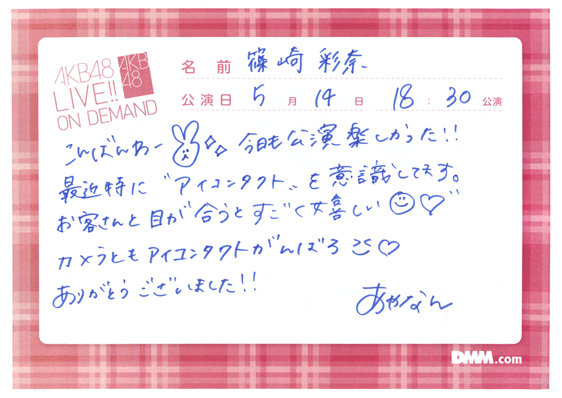 AKB48
LIVE!!
ON DEMAND
AKB
48
名前 篠崎 彩奈
公演日 5月14日 18:30公演
こんばんわー 今日も公演楽しかった!!
最近特に"アイコンタクト"を意識してます。
お客さんと目が合うとすごく嬉しい
カメラともアイコンタクトがんばろ
ありがとうございました!!
あやなん
DMM.com